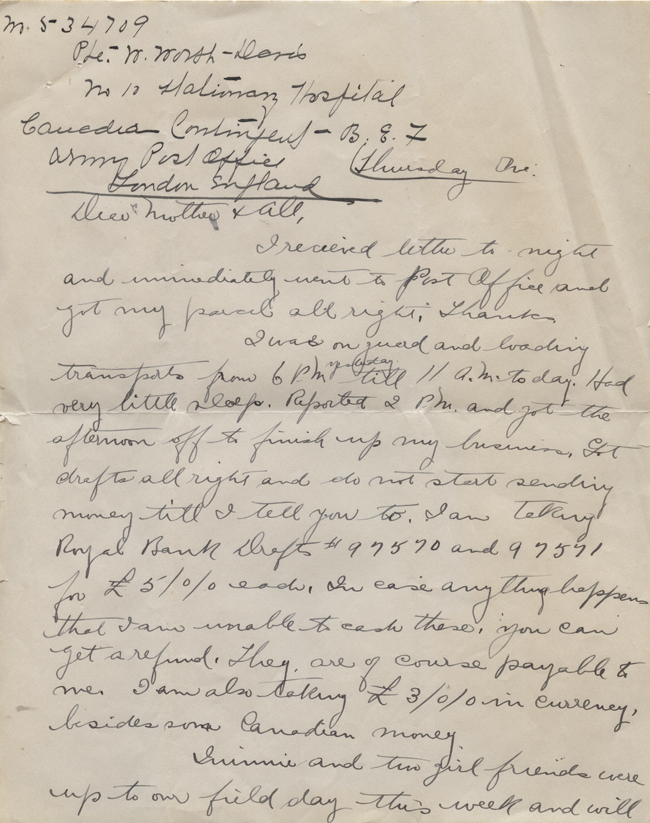 M. 5-34709
Pte. W. Worth-Davis
No 10 Stationary Hospital
Canadian Contingent - B. E. F
Army Post Office
Thursday Eve.
London England
Dear Mother & All,
I recieved letter to night
and immediately went to Post Office and
got my parcel all right; Thanks
I was on guard and loading
transports from 6 P.M. yesterday till 11 A.M. to day. Had
very little sleep. Reported 2 P.M. and got the
afternoon off to finish up my business. Got
drafts all right and do not start sending
money till I tell you to. I am taking
Royal Bank Drafts # 97570 and 97571
for £ 5/0/0 each. In case anything happens
that I am unable to cash these, you can
get a refund. They are of course payable to
me. I am also taking £ 3/0/0 in currency,
besides some Canadian money
and two girl friends were
up to our field day this week and will